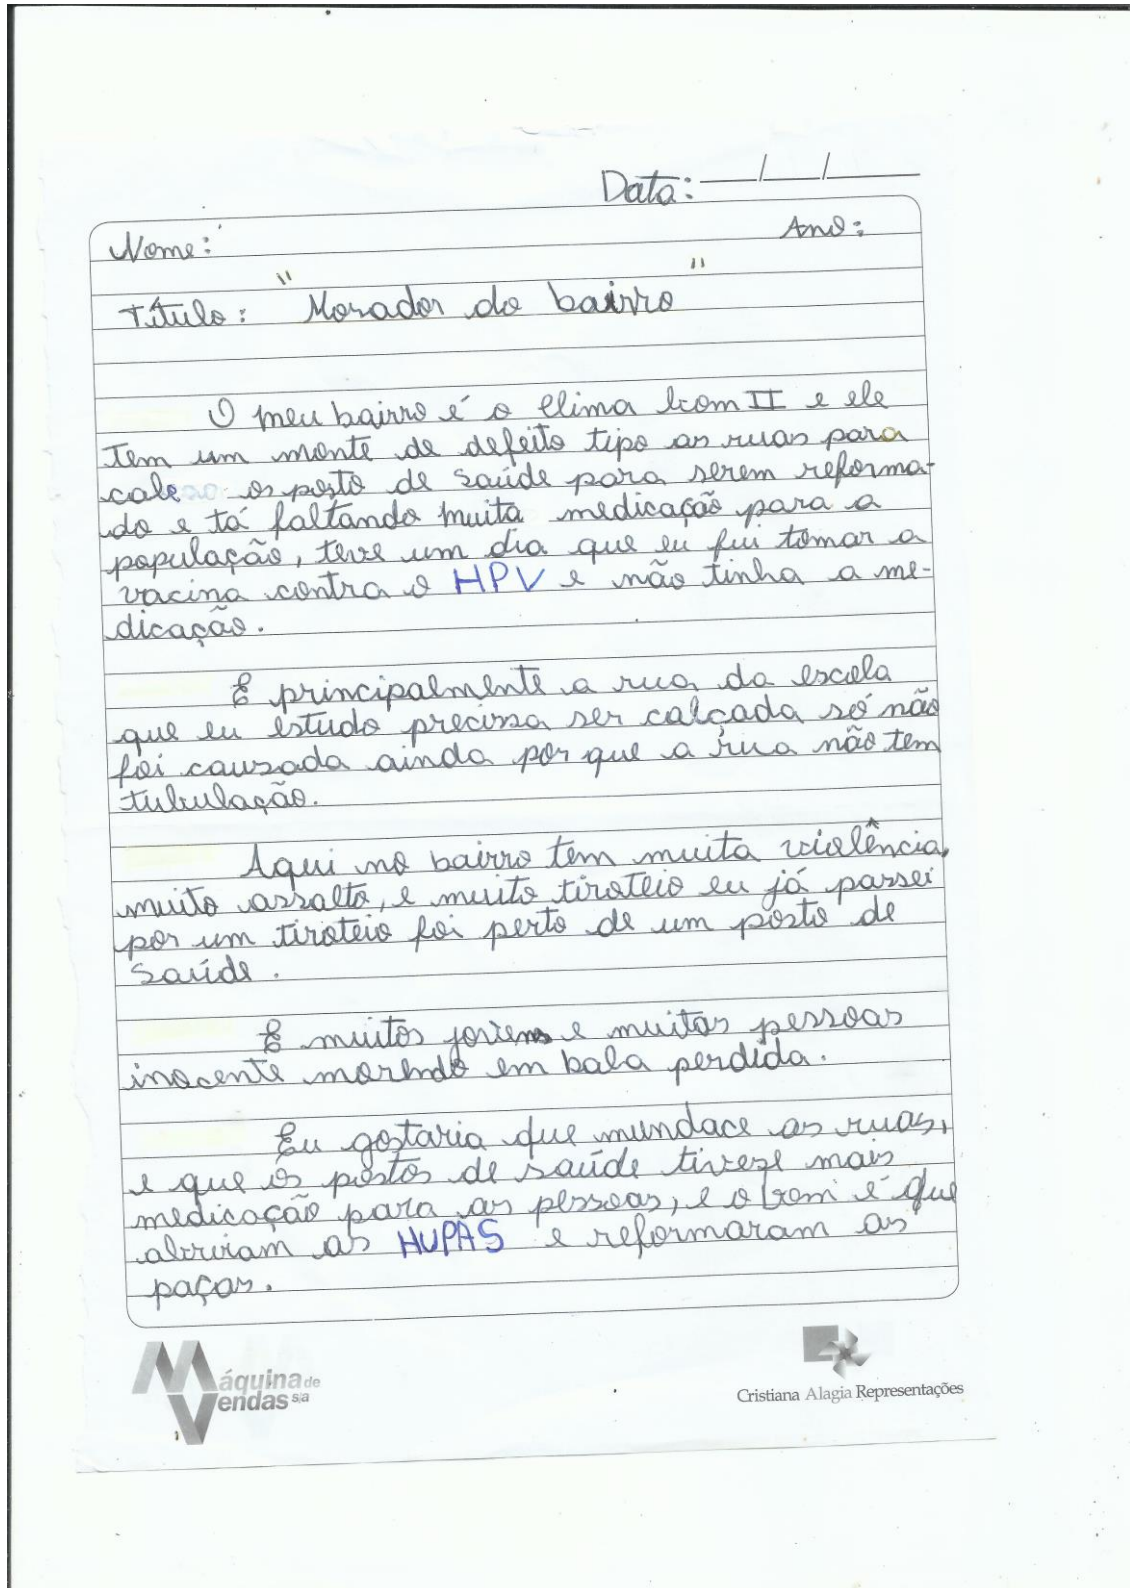 Data: ___/___/___
Nome: Ano:
Título: "Morador do bairro"
O meu bairro é o Clima bom II e ele
tem um monte de defeito tipo as ruas para
os posto de saúde para serem reforma-
do e tá faltando muita medicação para a
população, teve um dia que eu fui tomar a
vacina contra o HPV e não tinha a me-
dicação.
E principalmente a rua da escola
que eu estudo precissa ser calçada só não
foi causada ainda por que a rua não tem
tubulação.
Aqui no bairro tem muita violência,
muito assalto, e muito tiroteio eu já passei
por um tiroteio foi perto de um posto de
saúde.
E muitos jovens e muitas pessoas
inocente morendo em bala perdida.
Eu gostaria que mundace as ruas,
e que os postos de saúde tivese mais
medicação para as pessoas, e o bom é que
abriram as HUPAS e reformaram as
paças.
Máquina de
Vendas s/a
Cristiana Alagia Representações